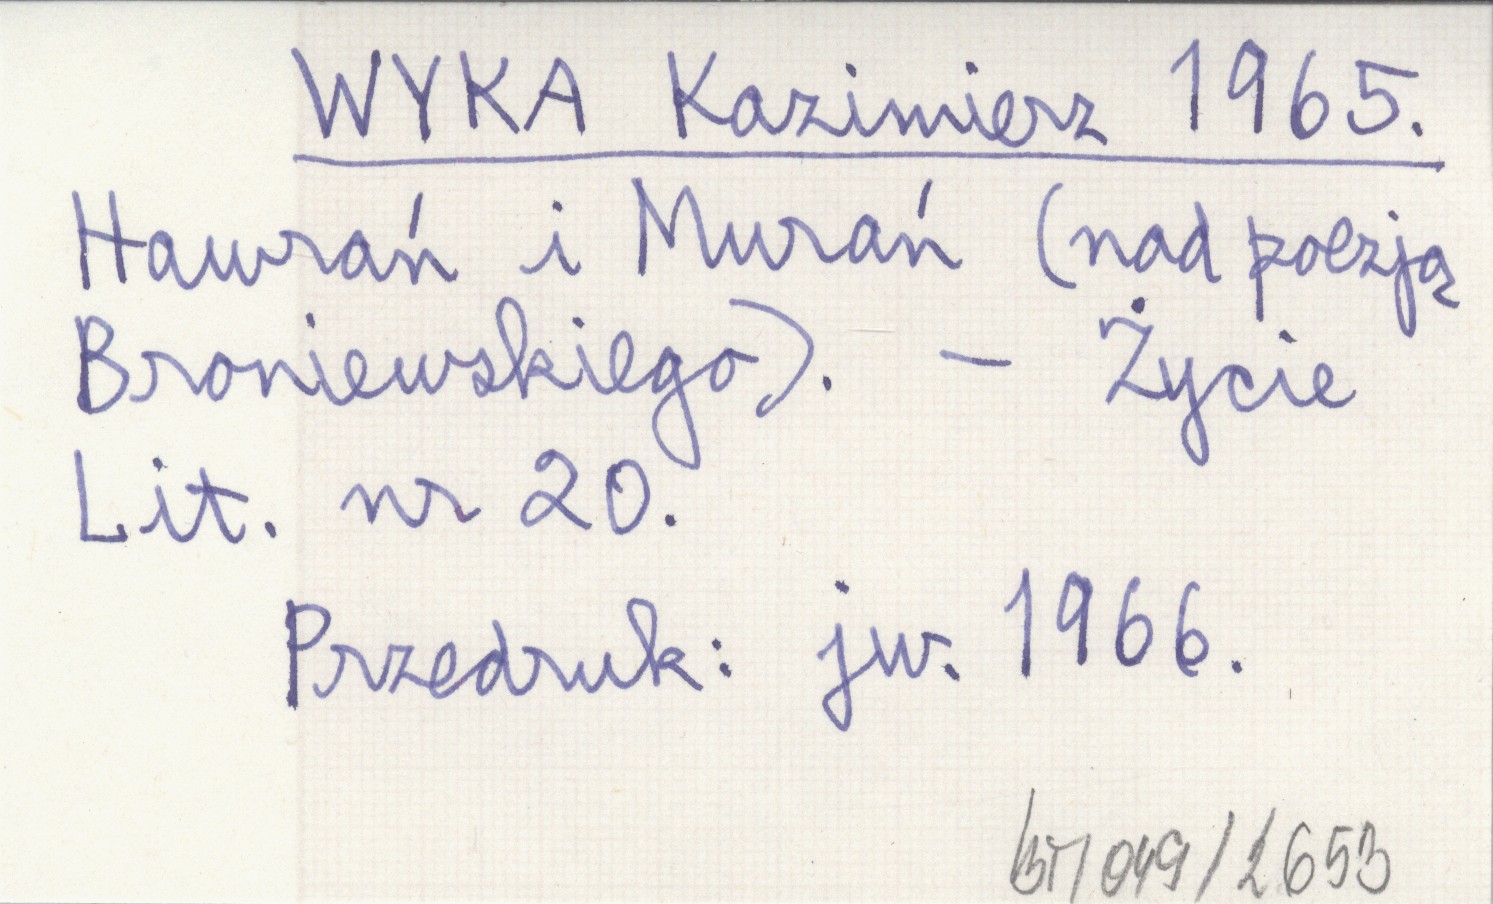 WYKA Kazimierz 1965.
Hawrań i Murań (nad poezją
Broniewskiego). – Życie
Lit. nr 20.
Przedruk: jw. 1966.
BT/049/2653